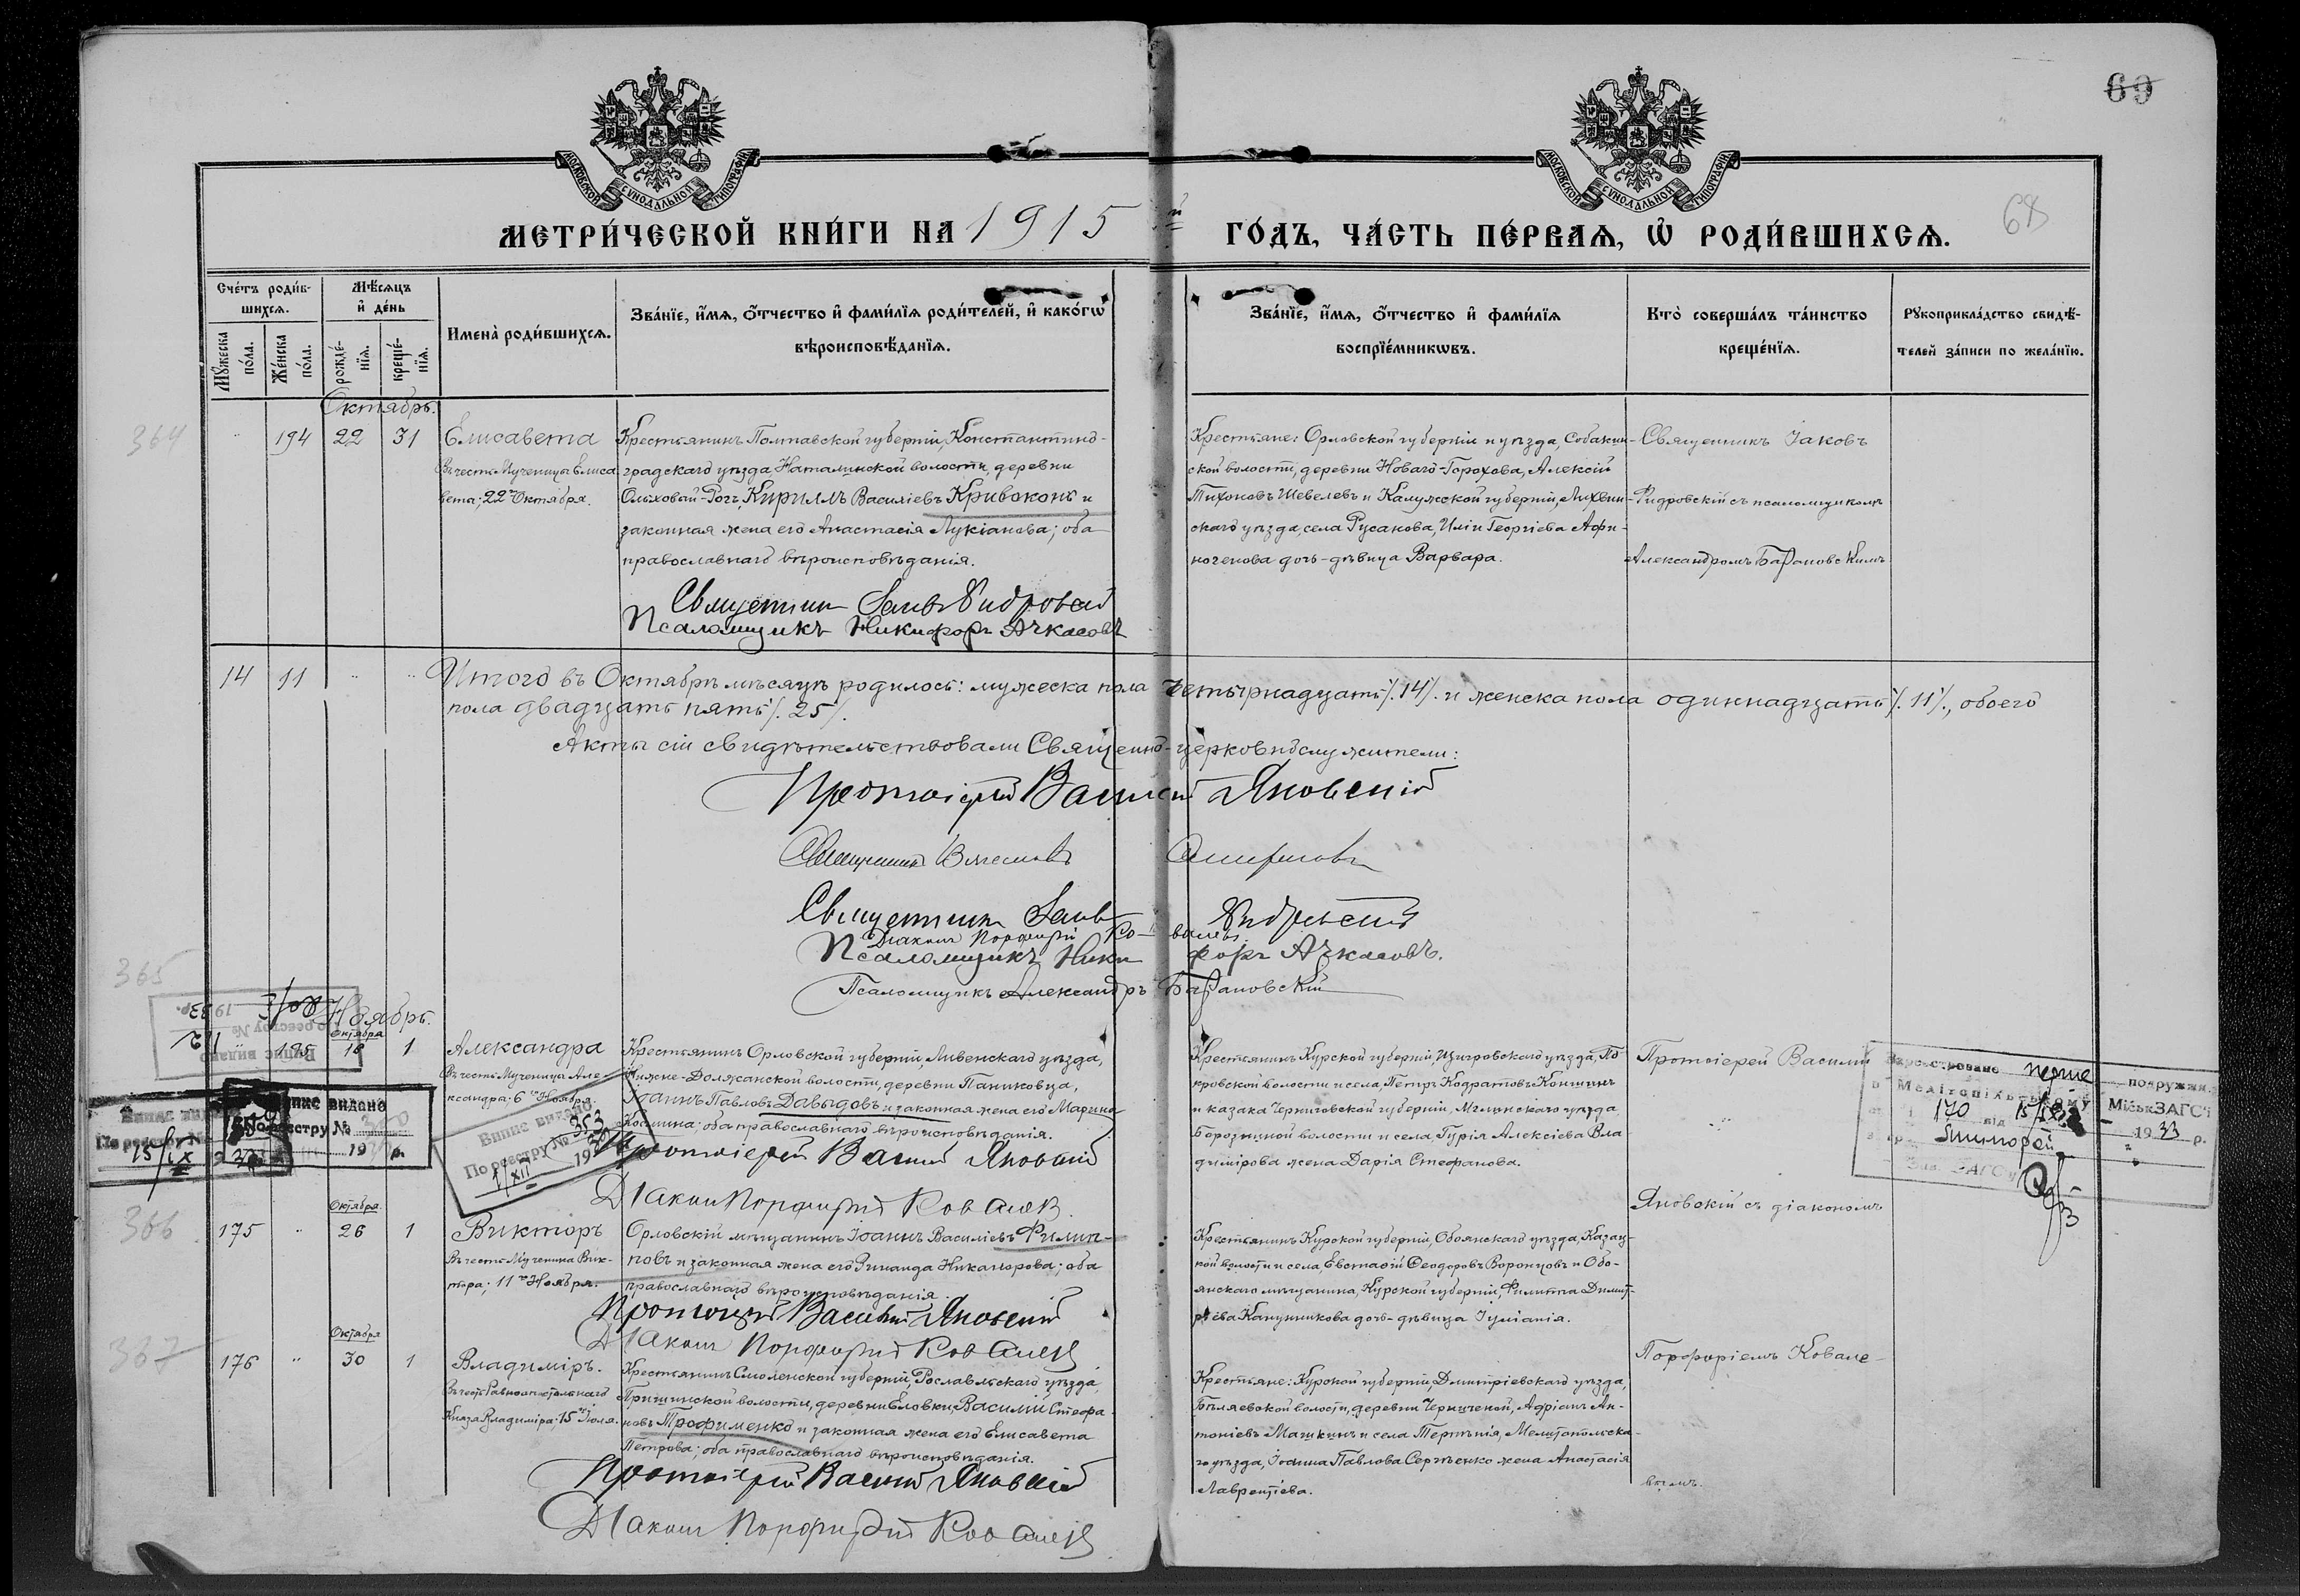 69
МОСКОВСКОЙ СУНОДАЛЬНОЙ ТИПОГРАФІИ
МОСКОВСКОЙ СУНОДАЛЬНОЙ ТИПОГРАФІИ
68
МЕТРИ́ЧЕСКОЙ КНИ́ГИ НА 1915 й ГО́ДЪ, ЧА́СТЬ ПЕ́РВАѦ, Ѡ҆ РОДИ́ВШИХСѦ.
Сче́тъ роди́в-
шихсѧ.
Мѣ́сѧцъ
и҆ де́нь
Мꙋ́жеска по́ла.
Же́нска по́ла.
рожде́-нїѧ.
креще́-нїѧ.
Имена̀ роди́вшихсѧ.
Зва́нїе, и҆́мѧ, ѻ҆́тчество и҆ фами́лїѧ роди́телей, и҆ како́гѡ
вѣроисповѣ́данїѧ.
Зва́нїе, и҆́мѧ, ѻ҆́тчество и҆ фами́лїѧ
воспрїе́мникѡвъ.
Кто̀ соверша́лъ та́инство
креще́нїѧ.
Рꙋкоприкла́дство свидѣ́-
телей за́писи по жела́нїю.
Октябрь.
364
194 22 31
Елисавета
Въ честь Мученицы Елиса
веты; 22го Октября.
Крестьянинъ Полтавской губерніи, Константино-
градскаго уѣзда Наталинской волости, деревни
Ольховай-Рогъ, Кириллъ Василіевъ Кривоконь и
законная жена его Анастасія Лукіанова; оба
православнаго вѣроисповѣданія.
Священникъ Іаковъ Ѳидровскій
Псаломщикъ Никифоръ Ачкасовъ
Крестьяне: Орловской губерніи и уѣзда, Собакин-
ской волости, деревни Новаго-Горохова, Алексій
Тихоновъ Шевелевъ и Калужской губерніи, Лихвин-
скаго уѣзда, села Русанова, Иліи Георгіева Афи-
ногенова дочь-дѣвица Варвара.
Священникъ Іаковъ
Ѳидровскій съ псаломщикомъ
Александромъ Барановскимъ
14 11
Итого въ Октябрѣ мѣсяцѣ родилось: мужеска пола четырнадцать /.14/. и женска пола одиннадцать /.11/., обоего
пола двадцать пять /.25/.
Акты сіи свидѣтельствовали Священно-церковнослужители:
Протоіерей Василій Яновскій
Священникъ
Священникъ Іаковъ Ѳидровскій
Діаконъ Порфирій Ковалевъ
Псаломщикъ Никифоръ Ачкасовъ.
Псаломщикъ Александръ Барановскій
365
Ноябрь.
Октября
195 18 1
Александра
Въ честь Мученицы Але-
ксандры; 6го Ноября.
Крестьянинъ Орловской губерніи, Ливенскаго уѣзда,
Нижне-Должанской волости, деревни Паниковца,
Іоаннъ Павловъ Давыдовъ и законная жена его Марина
Космина; оба православнаго вѣроисповѣданія.
Протоіерей Василій Яновскій
Діаконъ Порфирій Ковалевъ
Крестьянинъ Курской губерніи, Щигровскаго уѣзда, По-
кровской волости и села, Петръ Кодратовъ Коншинъ
и казака Черниговской губерніи, Мглинскаго уѣзда
волости и села, Гурія Алексіева Вла
димірова жена Дарія Стефанова.
Протоіерей Василій
Випис видано
По реєстру №
15/IX
Випис видано
По реєстру № 353
1/XII 19
Зареєстровано перше подружжя
в Мелітопільському МіськЗАГС'і
170 від 15/ 1933 р.
366
Октября
175 26 1
Викторъ
Въ честь Мученика Вик-
тора; 11го Ноября.
Орловскій мѣщанинъ Іоаннъ Василіевъ Филип-
повъ и законная жена его Зинаида Никанорова; оба
православнаго вѣроисповѣданія.
Протоіерей Василій Яновскій
Діаконъ Порфирій Ковалевъ
Крестьянинъ Курской губерніи, Обоянскаго уѣзда, Казац-
кой волости и села Евстафій Ѳеодоровъ Воронцовъ и Обо-
янскаго мѣщанина, Курской губерніи, Филиппа Димит-
ріева Канунникова дочь-дѣвица Іуліанія.
Яновскій съ діакономъ
367
Октября
176 30 1
Владиміръ.
Въ честь Равноапостольнаго
Князя Владиміра; 15го Іюля.
Крестьянинъ Смоленской губерніи, Рославльскаго уѣзда,
волости, деревни Еловки, Василій Стефа-
новъ Трофименко и законная жена его Елисавета
Петрова; оба православнаго вѣроисповѣданія.
Протоіерей Василій Яновскій
Діаконъ Порфирій Ковалевъ
Крестьяне: Курской губерніи, Дмитріевскаго уѣзда,
Бѣляевской волости, деревни Адріанъ Ан-
тоніевъ Машкинъ и села Терпѣнія, Мелитопольска-
го уѣзда, Іоанна Павлова Сергѣенко жена Анастасія
Лаврентіева.
Порфиріемъ Ковале-
вымъ.